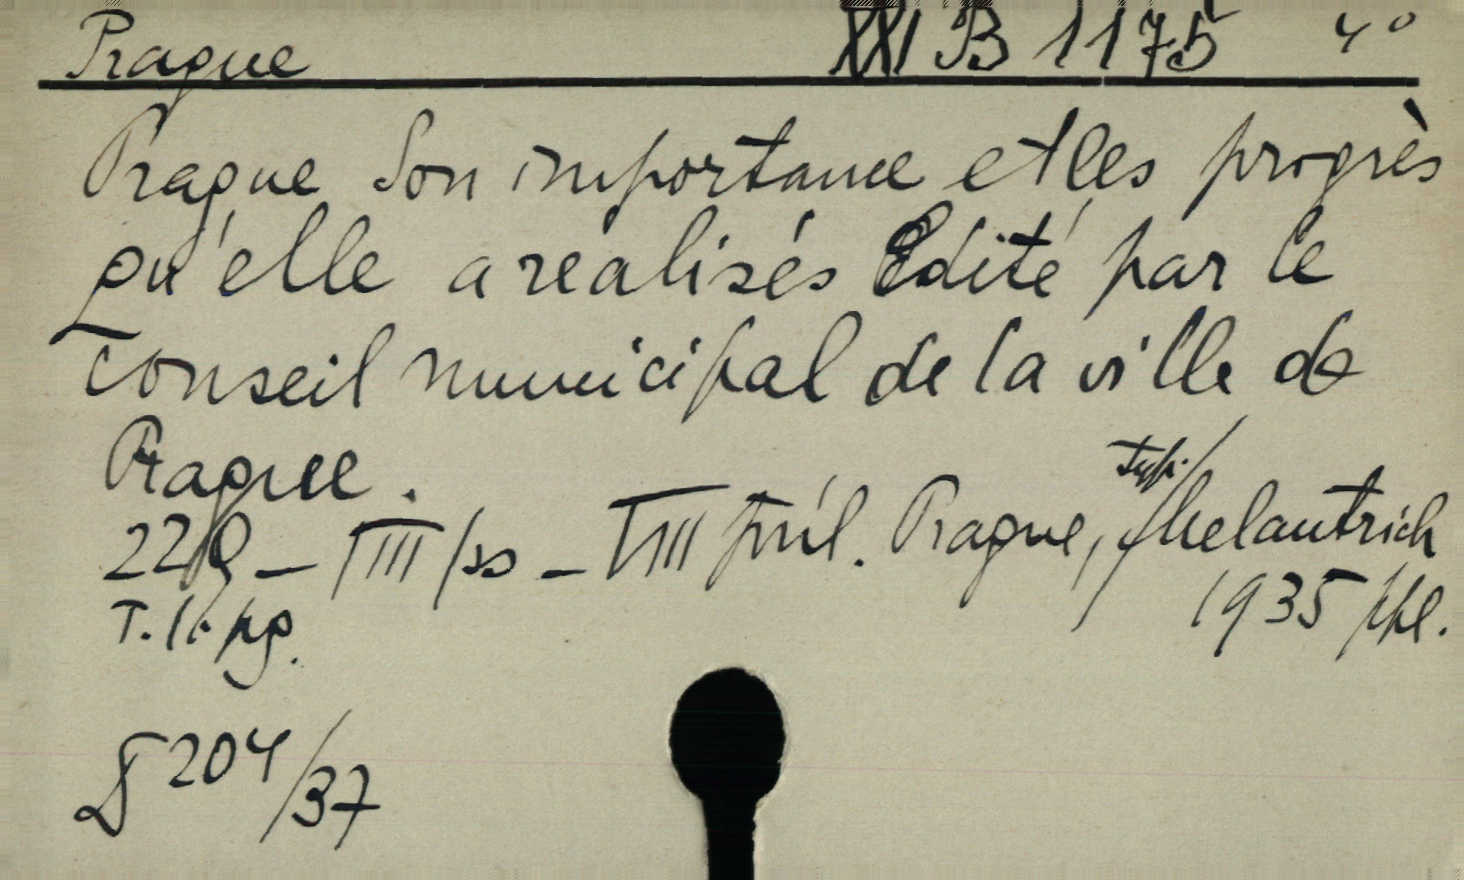 Prague XXI B 1175 4°
Prague Son importance et les progrès
qu'elle a réalisés Edité par le
Conseil municipal de la ville de
Prague.
228 - III příl. Prague, typ. Melantrich
T. II. pg. 1935
204/37